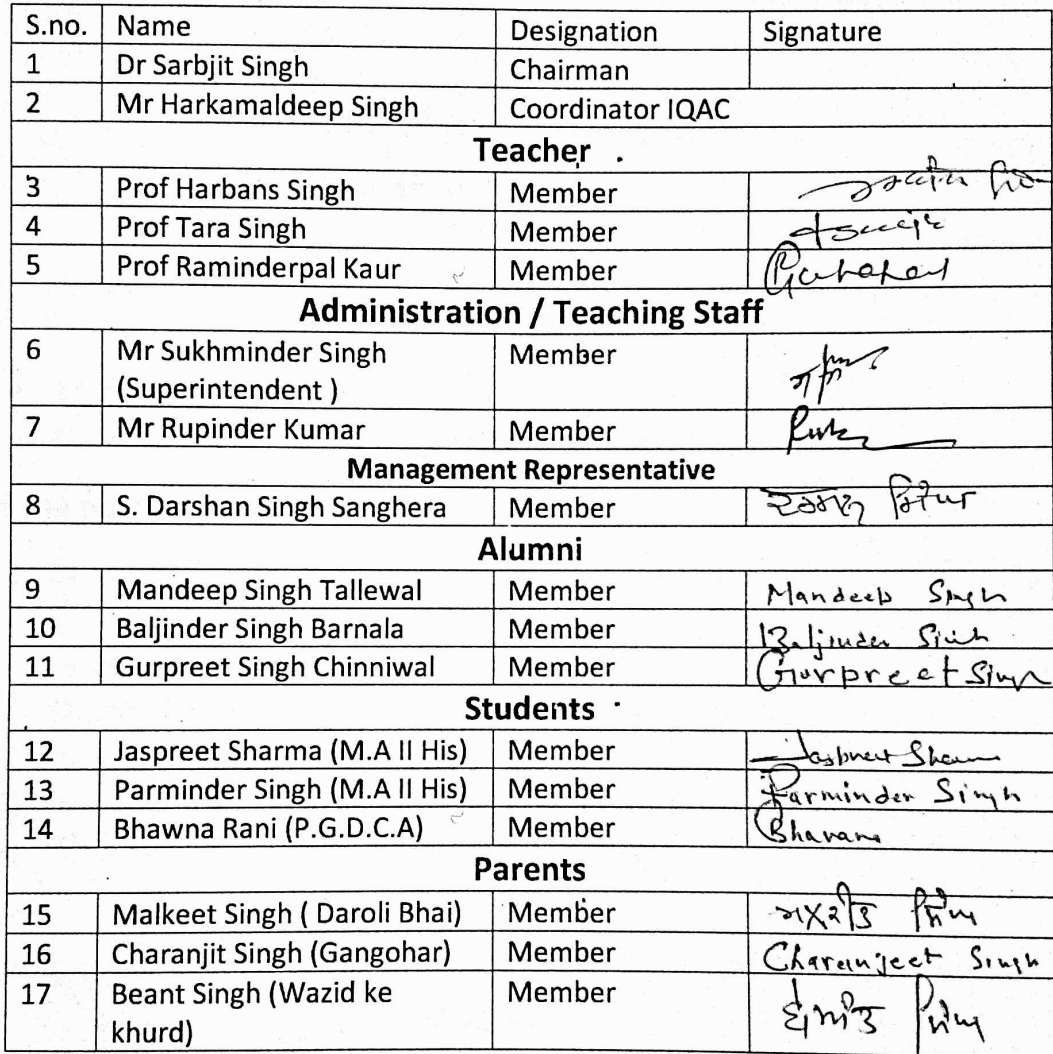 S.no. Name Designation Signature
1 Dr Sarbjit Singh Chairman
2 Mr Harkamaldeep Singh Coordinator IQAC
Teacher
3 Prof Harbans Singh Member
4 Prof Tara Singh Member
5 Prof Raminderpal Kaur Member
Administration / Teaching Staff
6 Mr Sukhminder Singh Member
(Superintendent )
7 Mr Rupinder Kumar Member
Management Representative
8 S. Darshan Singh Sanghera Member
Alumni
9 Mandeep Singh Tallewal Member Mandeep Singh
10 Baljinder Singh Barnala Member Baljinder Singh
11 Gurpreet Singh Chinniwal Member Gurpreet Singh
Students
12 Jaspreet Sharma (M.A II His) Member Jaspreet Sharma
13 Parminder Singh (M.A II His) Member Parminder Singh
14 Bhawna Rani (P.G.D.C.A) Member
Parents
15 Malkeet Singh ( Daroli Bhai) Member ਮਲਕੀਤ ਸਿੰਘ
16 Charanjit Singh (Gangohar) Member Charanjeet Singh
17 Beant Singh (Wazid ke Member ਬੇਅੰਤ ਸਿੰਘ
khurd)